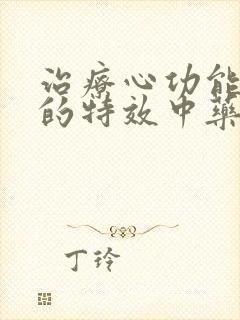 治療心功能
的特效中藥
丁玲